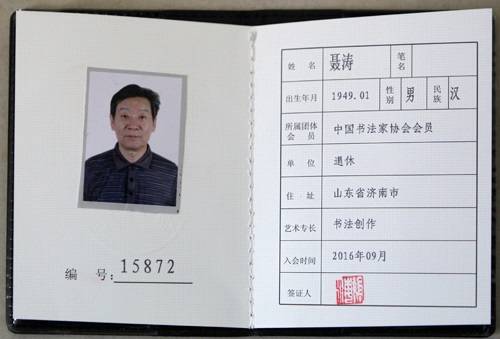 编 号: 15872
姓 名 聂涛 笔名
出生年月 1949.01 性别 男 民族 汉
所属团体会员 中国书法家协会会员
单 位 退休
住 址 山东省济南市
艺术专长 书法创作
入会时间 2016年09月
签证人